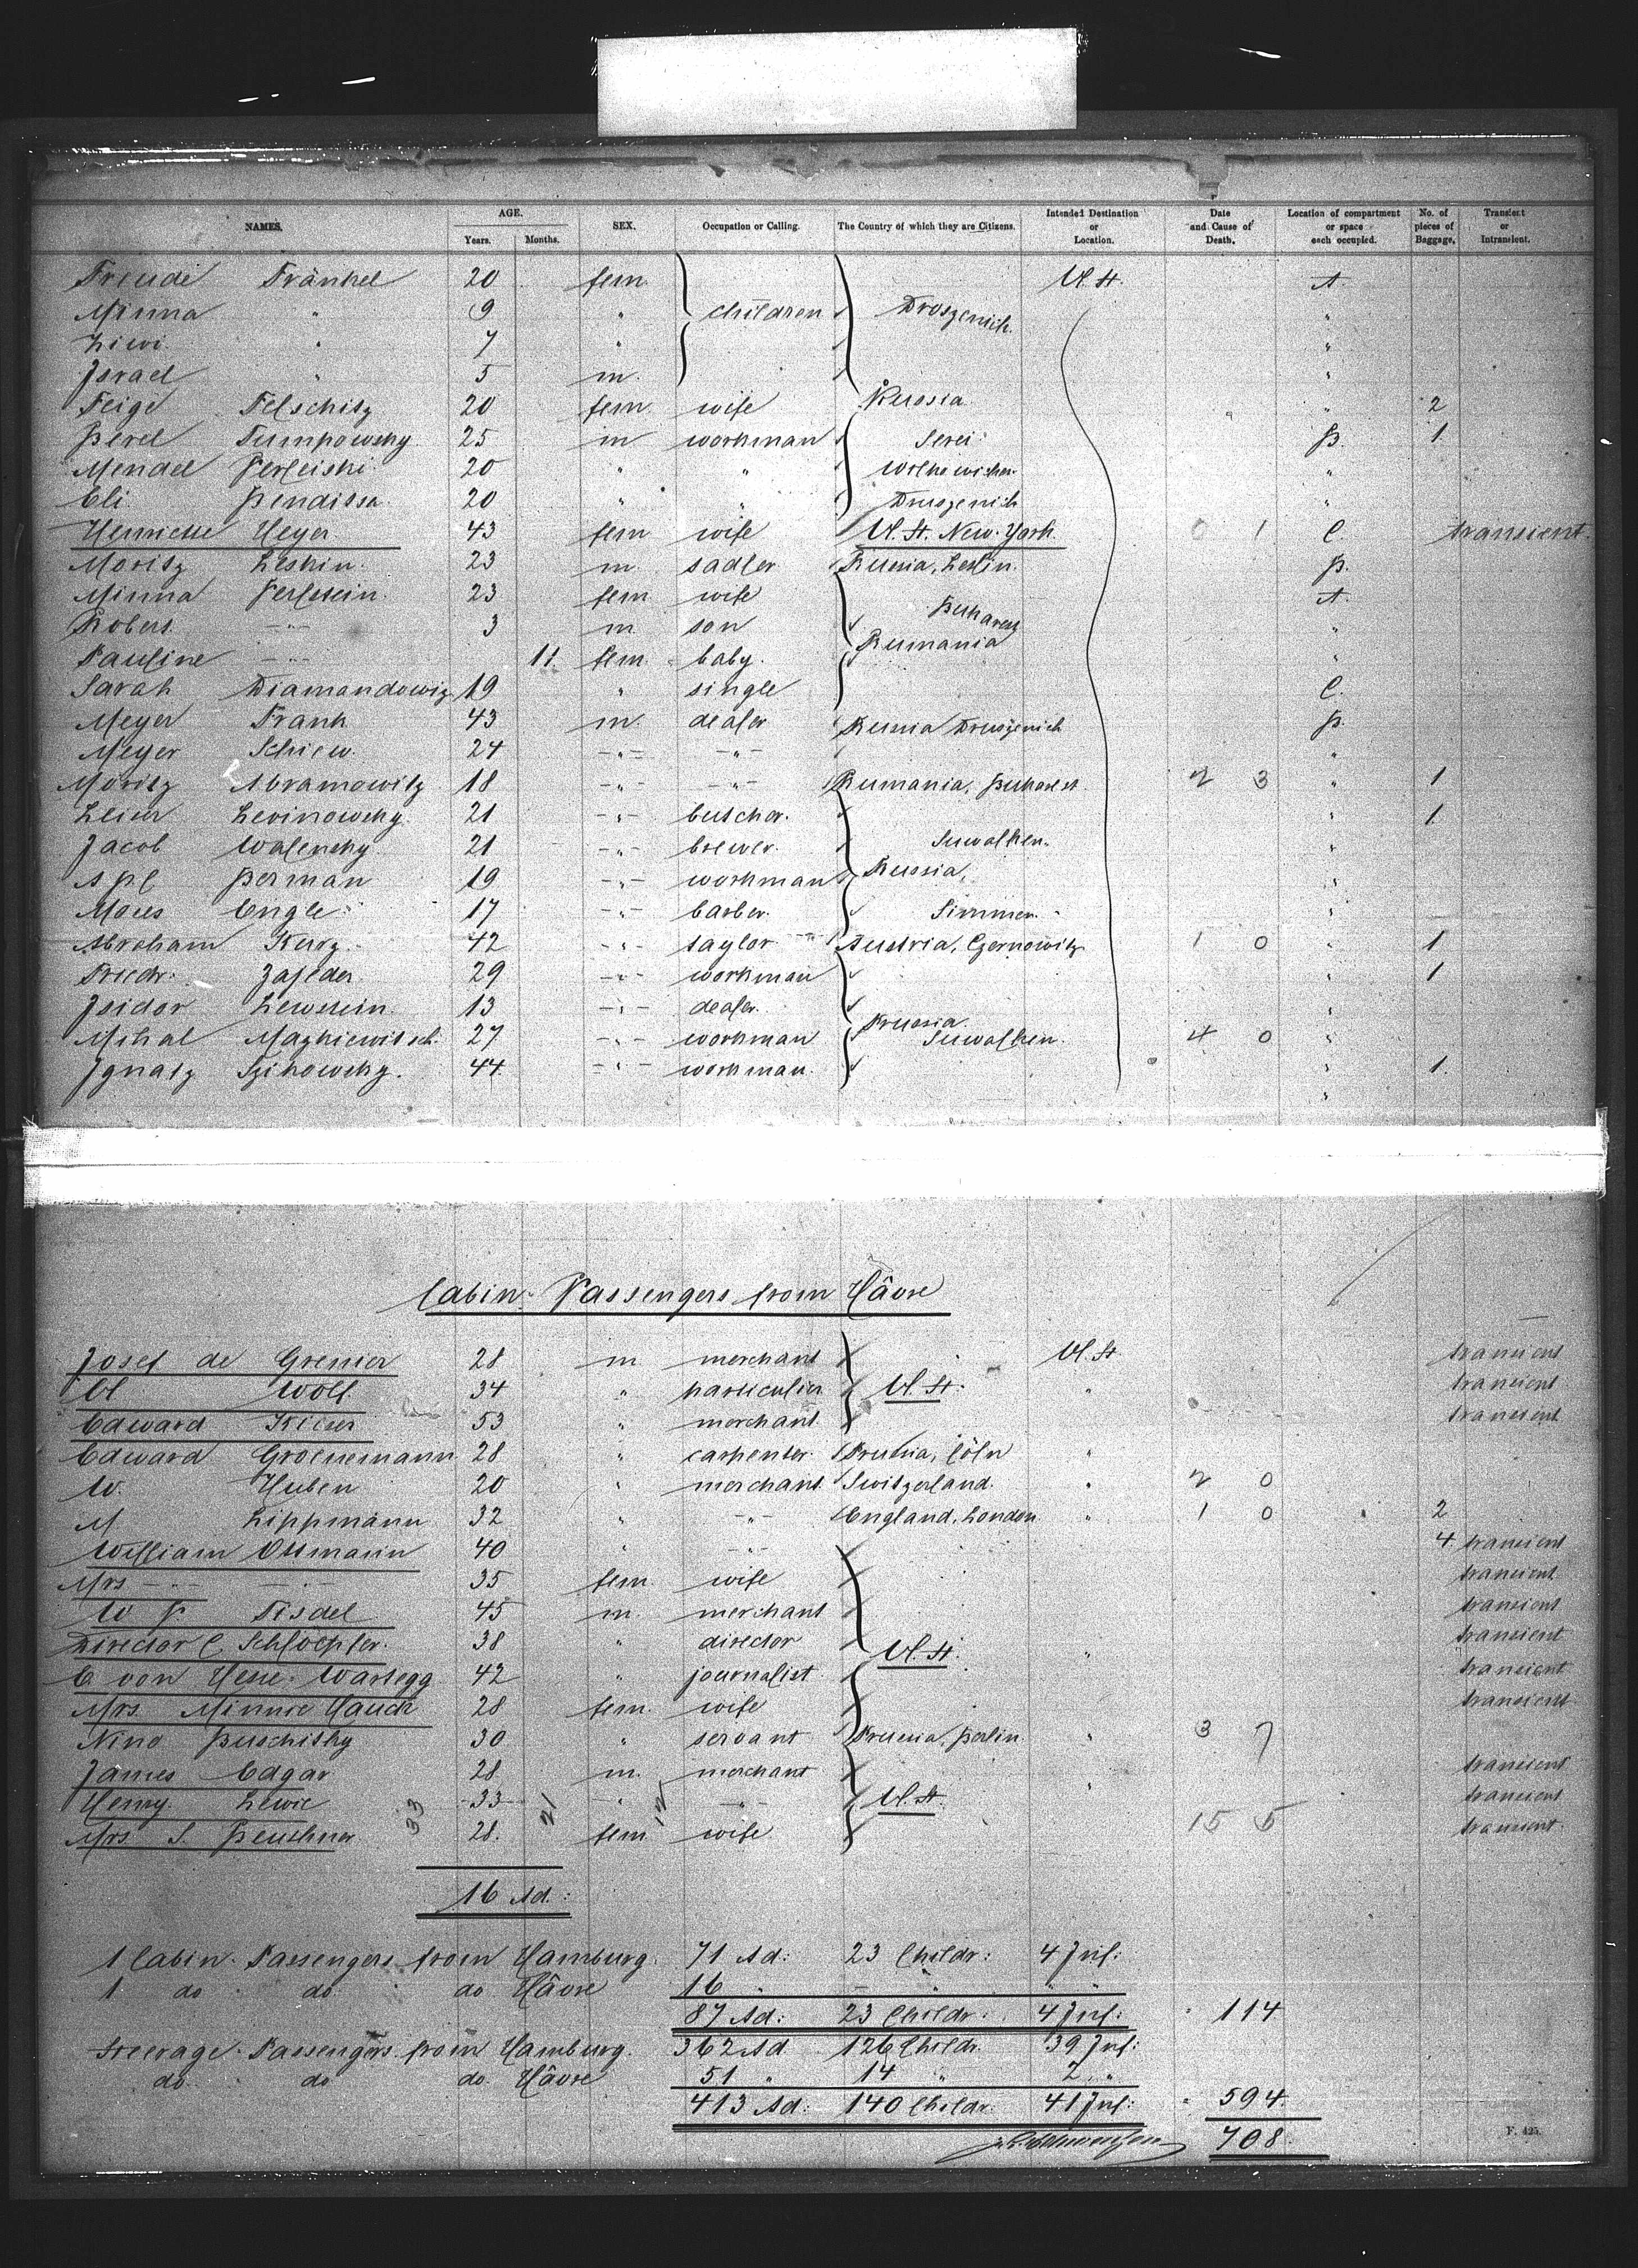 NAMES. AGE. Years. Months. SEX. Occupation or Calling. The Country of which they are Citizens. Intended Destination or Location. Date and Cause of Death. Location of compartment or space each occupied. No. of pieces of Baggage. Transient or Intransient.
Freude Fränkel 20 fem. U. St. A.
Minna " 9 " children Droszenich
Liwi " 7 " "
Israel " 5 m. "
Feige Felschitz 20 fem. wife Russia " 2
Berel Tumpowsky 25 m workman Serei B. 1
Mendel 20 " " "
Eli 20 " " Druszenich "
Henriette Heyer 43 fem wife U. St. New-York 0 1 C. transient.
Moritz Leskin 23 m sadler Russia, B.
Minna Perlstein. 23 fem wife Bukarest A.
Robert -"- 3 m son "
Pauline -"- 11 fem. baby. Rumania "
Sarah Diamandowiz 19 " single C.
Meyer Frank 43 m. dealer Russia Druszenich B.
Meyer Schiew. 24 -"- -"- "
Moritz Abramowitz 18 -"- -"- Rumania, Bukarest. 2 3 " 1
Leiser Levinowsky. 21 -"- butscher. " 1
Jacob Walensky 21 -"- brewer. Suwalken. "
Berman 19 -"- workman Russia, "
Moses Engle 17 -"- barber. Simmen. "
Abraham Kurz. 42 -"- taylor Austria, Czernowitz 1 0 " 1
Friedr. 29 -"- workman " 1
Isidor Lewstein. 13 -"- dealer. "
Mihal Mazkiewitsch. 27 -"- workman Prussia Suwalken. 4 0 "
Ignatz 44 -"- workman. " 1.
Cabin-Passengers from Hâvre
Josef de Grenier 28 m merchant U. St. transient
Wolf. 34 " particulier U. St. " transient
Edward Kieser 53 " merchant. transient
Edward Groenemann 28 " carpenter. Prussia, Cöln "
W. Huben 20 " merchant. Switzerland. " 2 0
M Lippmann 32 " -"- England, London " 1 0 2
William Ottmann 40 " -"- 4 transient
Mrs -"- -"- 35 fem. wife transient
W P Tisdel 45 m. merchant transient
Director C. Schloepfer. 38 " director U. St. " transient
E von Hesse-Wartegg 42 " journalist transient
Mrs. Minnie Hauck 28 fem. wife transient
Nino Buschitky 30 " servant Prussia, Berlin. " 3 7
James Edgar 28 m. merchant transient
Henry Lewie 33 " -"- U. St. " transient
Mrs. S. 28. fem wife 15 5 transient
33 21 12
16 Ad:
1 Cabin-Passengers from Hamburg. 71 Ad: 23 Childr: 4 Inf:
1 do do do Hâvre 16 " - " " "
87 Ad: 23 Childr: 4 Inf: " 114
Steerage-Passengers from Hamburg. 362 Ad 126 Childr. 39 Inf:
do do do Hâvre 51 " 14 " 2 "
413 Ad: 140 Childr: 41 Inf: " 594.
708.
F. 425.